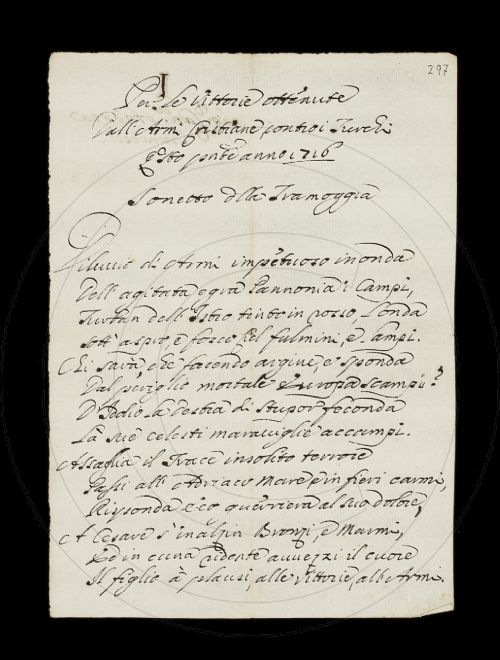 297
Per le Vittorie ottenute
Dall'Armi Cristiane contro i Turchi
qsto pnte anno 1716
Sonetto dlla Tramoggia
Diluvio di Armi impetuoso inonda
Dell'agitata egra Pannonia i Campi,
dell'Istro tinto in rosso, l'onda
sott'aspro, e fosco Ciel fulmini, e lampi.
Chi sarà, che facendo argine, e sponda
Dal periglio mortale Europa scampi?
D'Iddio la destra di stupor feconda
Là sue celesti maraviglie accampi.
Assaglia il Trace insolito terrore
Passi all'Adriaco Mare, e in fieri carmi,
Risponda eco guerriera al suo dolore,
A Cesare s'inalzin Bronzi, e Marmi,
Ed in cuna ridente avvezzi il cuore
Il figlio à plausi, alle Vittorie, all'Armi.